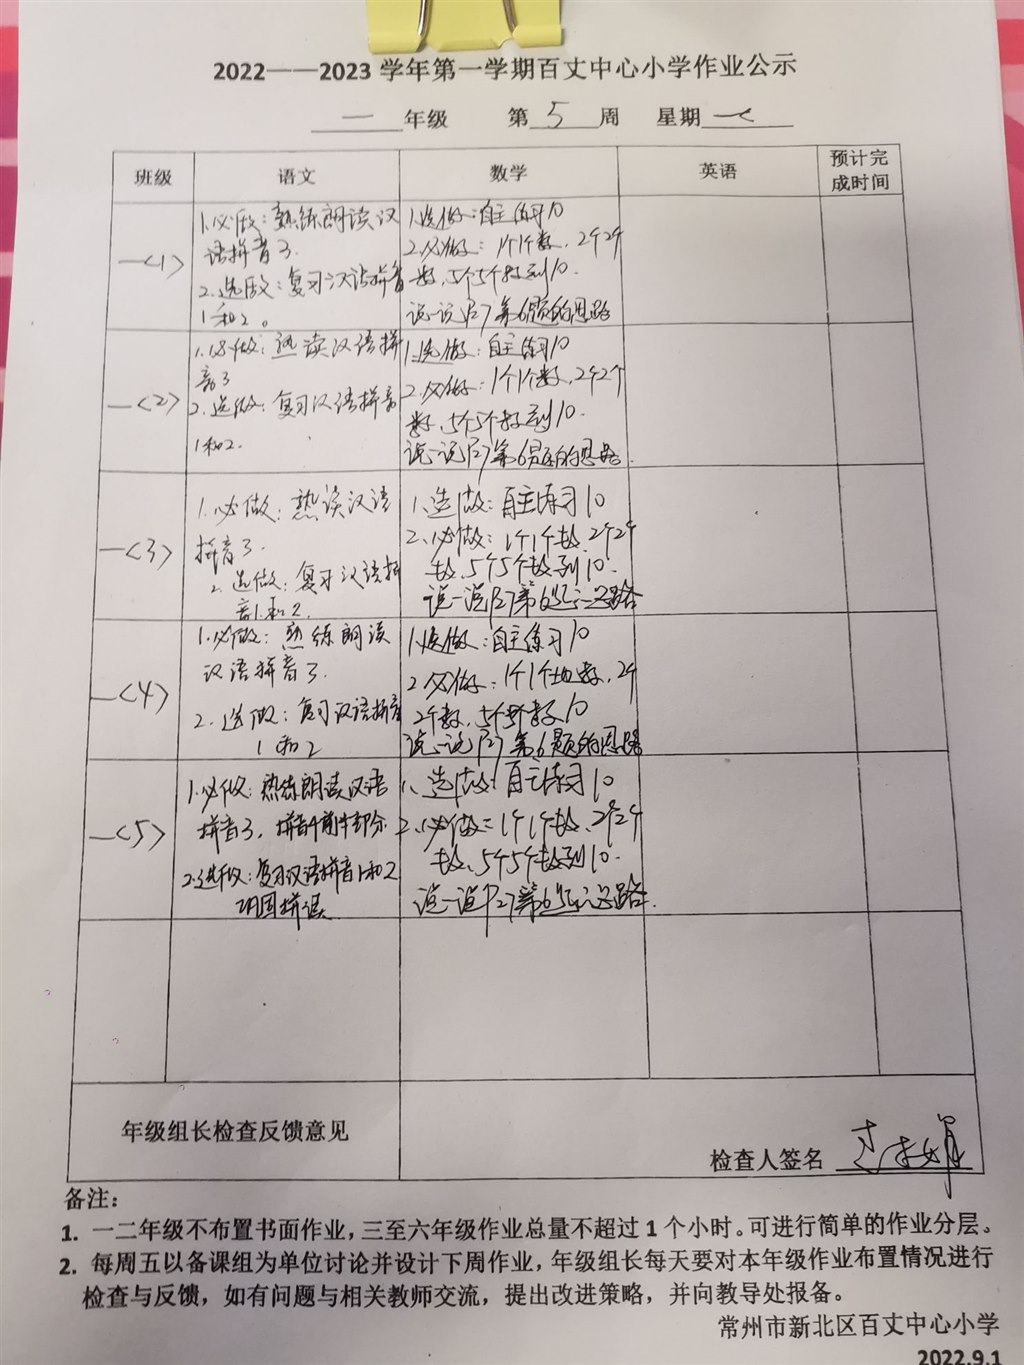 2022——2023 学年第一学期百丈中心小学作业公示
一 年级 第 5 周 星期
班级 语文 数学 英语 预计完成时间
一<1>
1.必做：熟练朗读汉
语拼音3.
2.选做：复习汉语拼音
1和2。
1.选做：自主练习10
2.必做：1个1个数，2个2个
数，5个5个数到10.
说一说P27第6题的思路
一<2>
1.必做：熟读汉语拼
音3
2.选做：复习汉语拼音
1和2.
1.选做：自主练习10
2.必做：1个1个数，2个2个
数，5个5个数到10.
说一说P27第6题的思路.
一<3>
1.必做：熟读汉语
拼音3.
2.选做：复习汉语拼
音1和2.
1.选做：自主练习10
2.必做：1个1个数，2个2个
数，5个5个数到10.
说一说P27第6题思路
一<4>
1.必做：熟练朗读
汉语拼音3.
2.选做：复习汉语拼音
1和2
1.选做：自主练习10
2.必做：1个1个地数，2个
2个数，5个5个数10
说一说P27第6题的思路
一<5>
1.必做：熟练朗读汉语
拼音3，拼音4前半部分
2.选做：复习汉语拼音1和2
巩固拼读
1.选做：自主练习10
2.必做：1个1个数，2个2个
数，5个5个数到10.
说一说P27第6题思路.
年级组长检查反馈意见
检查人签名
备注：
1. 一二年级不布置书面作业，三至六年级作业总量不超过1个小时。可进行简单的作业分层。
2. 每周五以备课组为单位讨论并设计下周作业，年级组长每天要对本年级作业布置情况进行
检查与反馈，如有问题与相关教师交流，提出改进策略，并向教导处报备。
常州市新北区百丈中心小学
2022.9.1